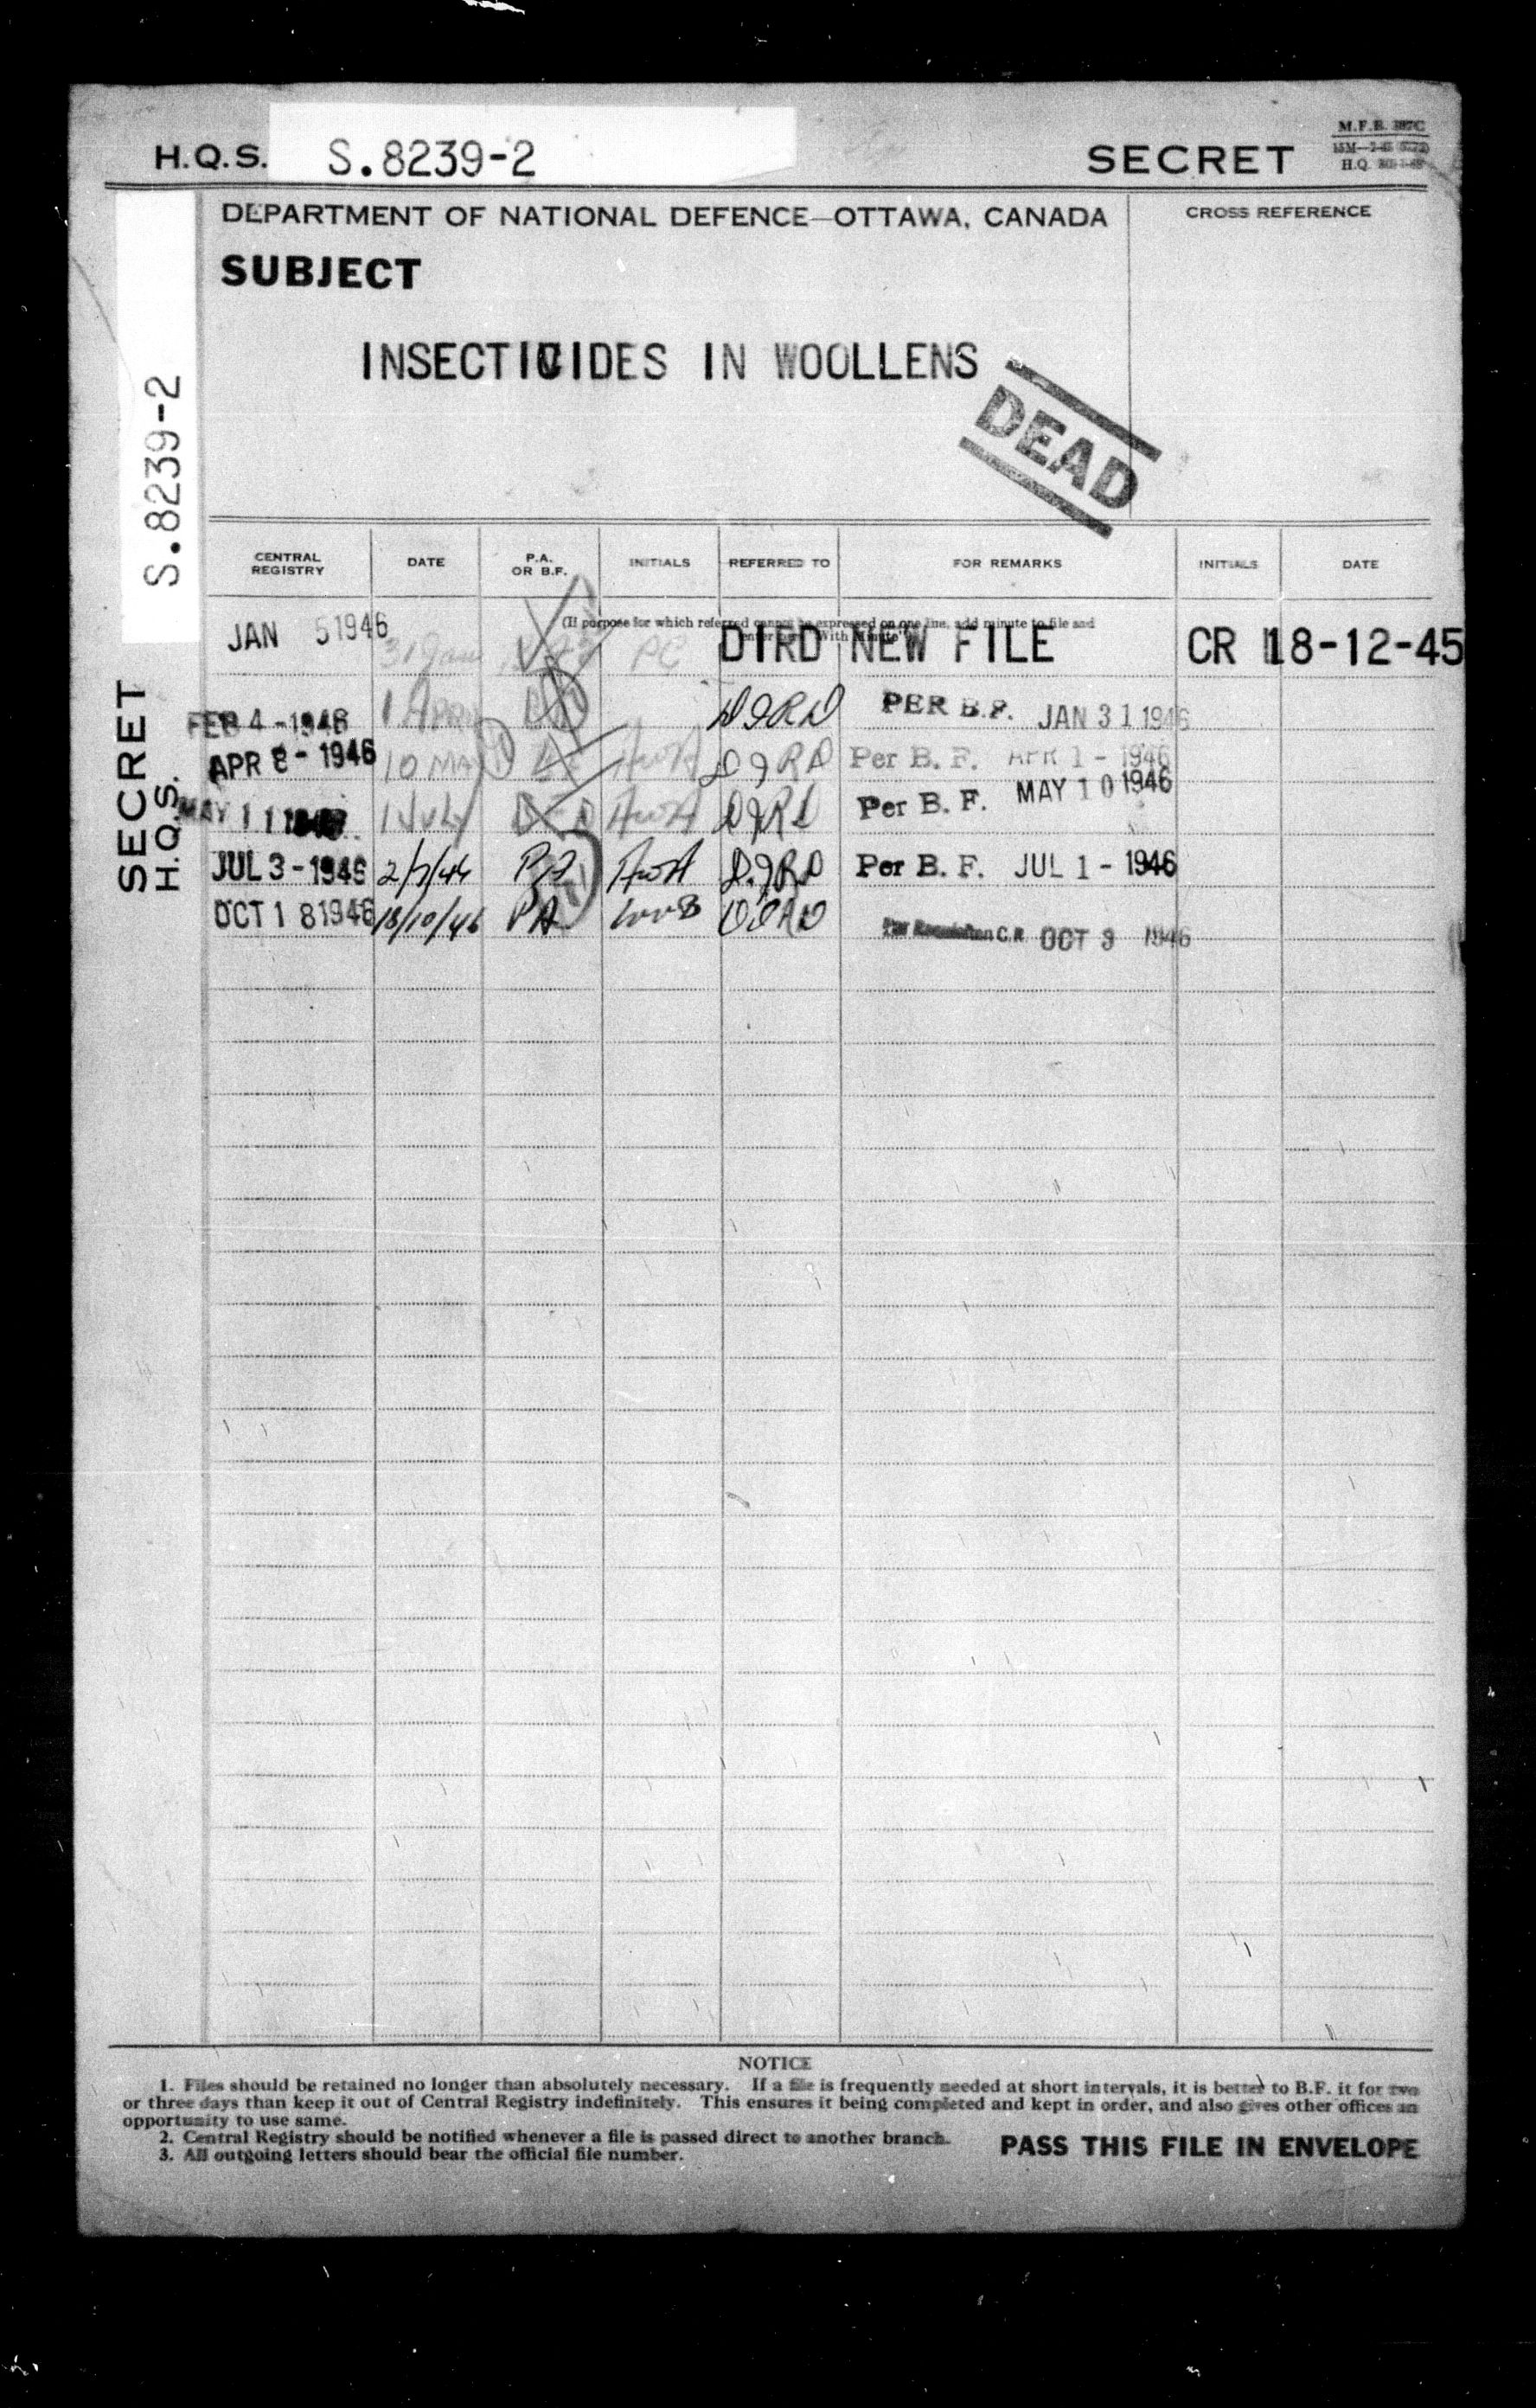 H.Q.S. S.8239-2 SECRET
M.F.B.
H.Q.
DEPARTMENT OF NATIONAL DEFENCE—OTTAWA, CANADA
CROSS REFERENCE
SUBJECT
INSECTICIDES IN WOOLLENS
DEAD
S.8239-2
SECRET
H.Q.S.
CENTRAL REGISTRY DATE P.A. OR B.F. INITIALS REFERRED TO FOR REMARKS INITIALS DATE
(If purpose for which referred cannot be expressed on one line, add minute to file and
enter here "With Minute")
JAN 5 1946 31 Jan PC DIRD NEW FILE CR 18-12-45
FEB 4 - 1946 1 April DIRD PER B.F. JAN 31 1946
APR 8 - 1946 10 May AWA DIRD Per B. F. APR 1 - 1946
MAY 11 1946 1 July AWA DIRD Per B. F. MAY 10 1946
JUL 3 - 1946 2/7/46 PA AWA D.IRD Per B. F. JUL 1 - 1946
OCT 18 1946 18/10/46 PA DIRD C.R OCT 3 1946
NOTICE
1. Files should be retained no longer than absolutely necessary. If a file is frequently needed at short intervals, it is better to B.F. it for two
or three days than keep it out of Central Registry indefinitely. This ensures it being completed and kept in order, and also gives other offices an
opportunity to use same.
2. Central Registry should be notified whenever a file is passed direct to another branch.
3. All outgoing letters should bear the official file number.
PASS THIS FILE IN ENVELOPE